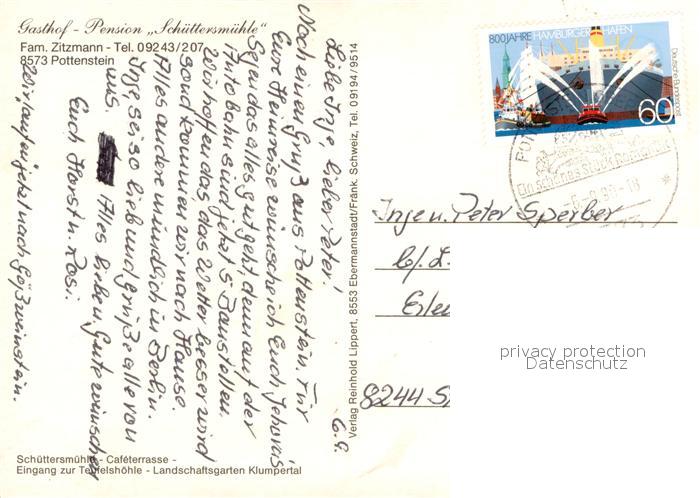 Gasthof - Pension „Schüttersmühle“
Fam. Zitzmann - Tel. 09243/207
8573 Pottenstein
6.9.
Liebe Inge, lieber Peter!
Noch einen Gruß aus Pottenstein. Für
Eure Heimreise wünsche ich Euch
Segen das alles gut geht, denn auf der
Autobahn sind jetzt 5 Baustellen.
Wir hoffen das, das Wetter besser wird
sonst kommen wir nach Hause.
Alles andere mündlich in Berlin.
Inge, sei so lieb und grüße alle von
uns. Alles lieben Gute wünschen
Euch Horst u. Rosi.
Wir laufen jetzt nach Gößweinstein.
Schüttersmühle - Caféterrasse -
Eingang zur Teufelshöhle - Landschaftsgarten Klumpertal
Verlag Reinhold Lippert, 8553 Ebermannstadt/Fränk. Schweiz, Tel. 09194/9514
800 JAHRE HAMBURGER HAFEN
Deutsche Bundespost
60
Ein schönes Stück Romantik
Inge u. Peter Sperber
b/L.
8244 S
privacy protection
Datenschutz